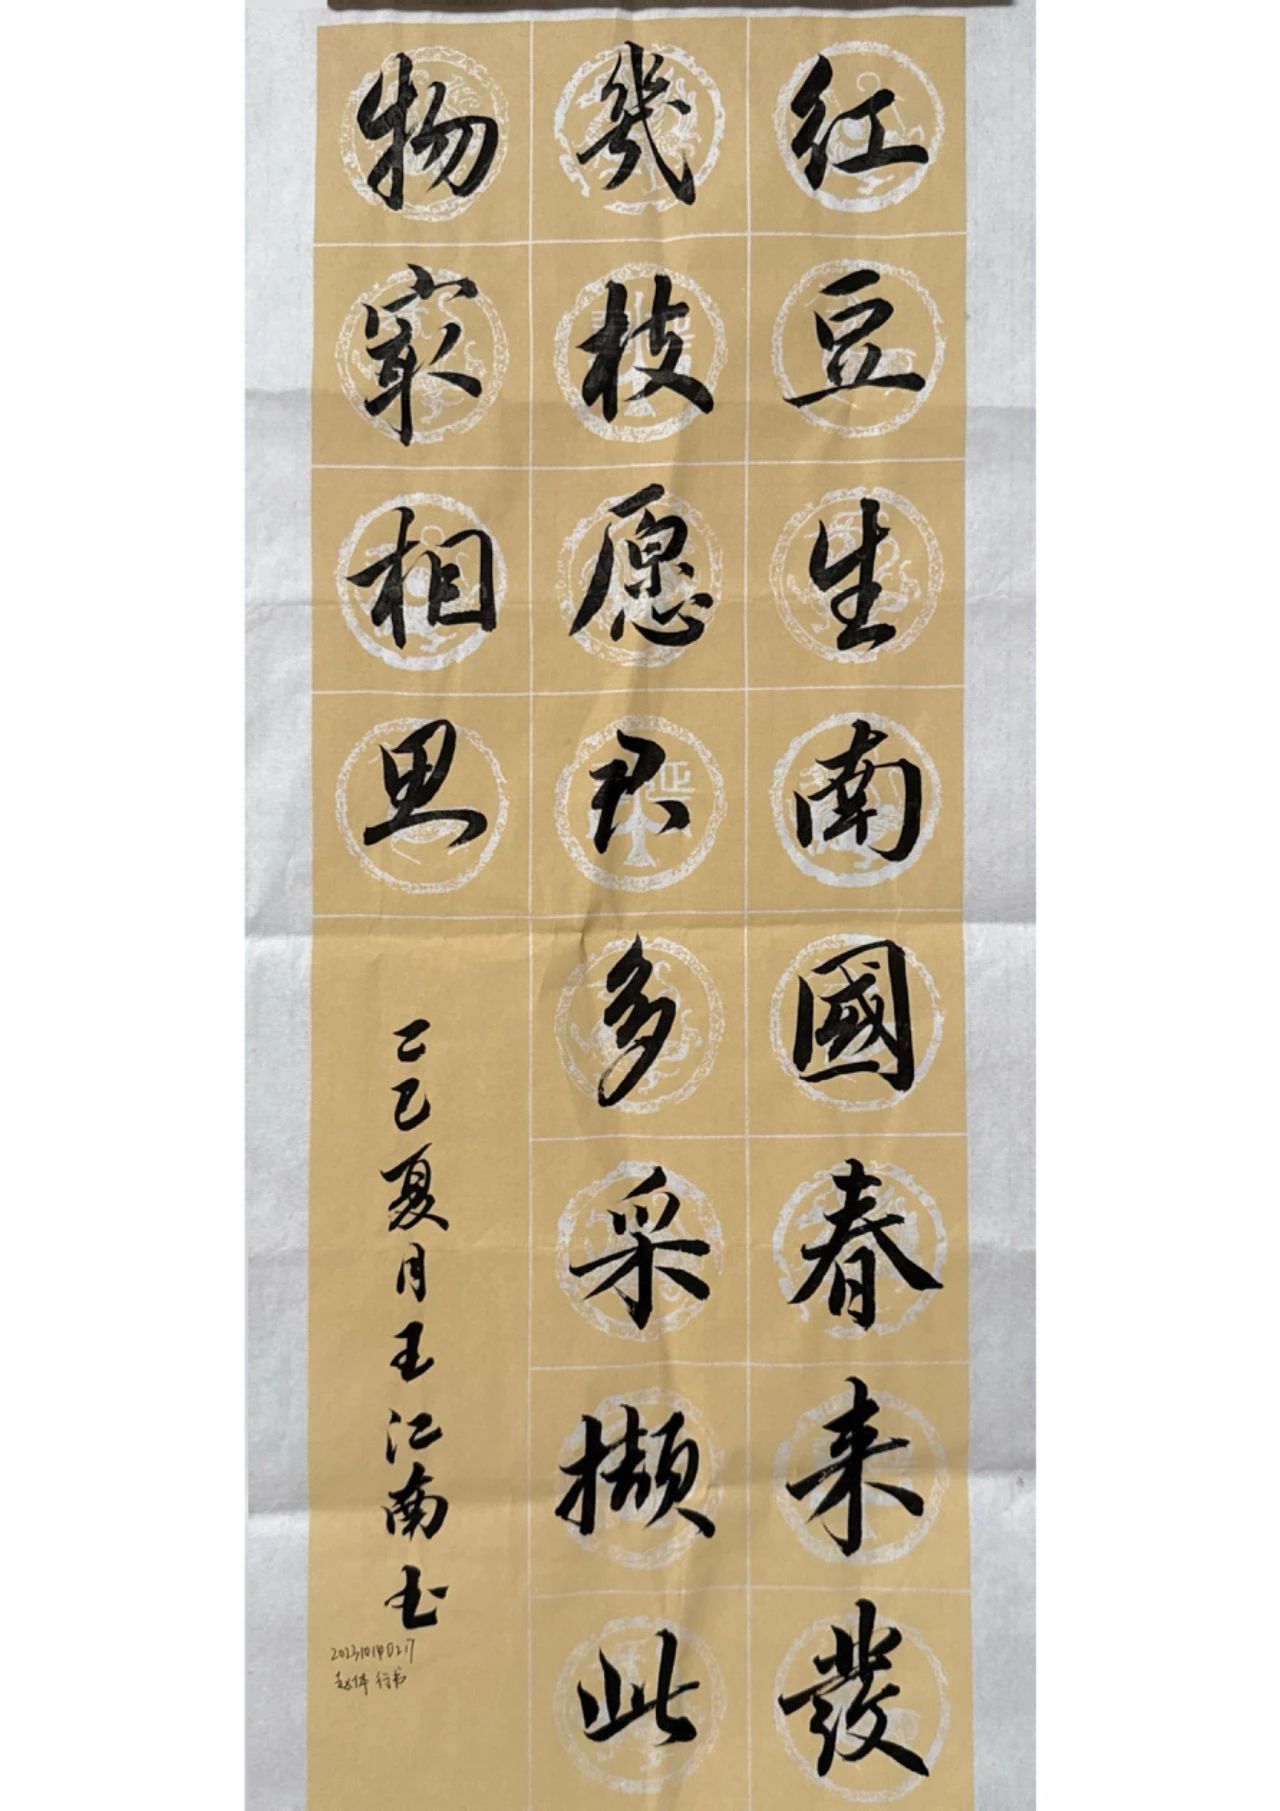 红豆生南國春来發
幾枝愿君多采擷此
物冣相思
乙巳夏月王江南书
赵体 行书